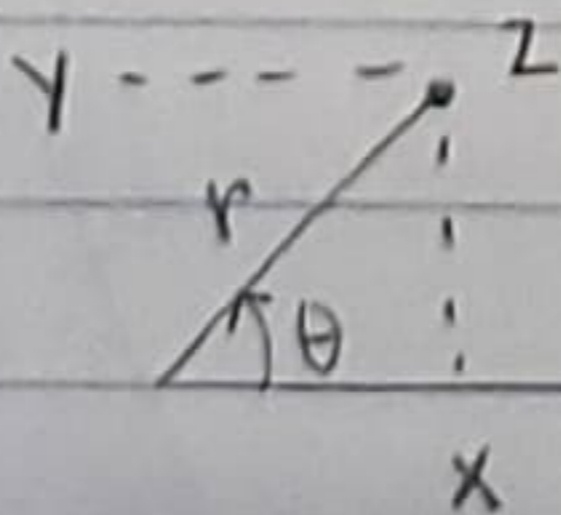 y z
r
θ
x